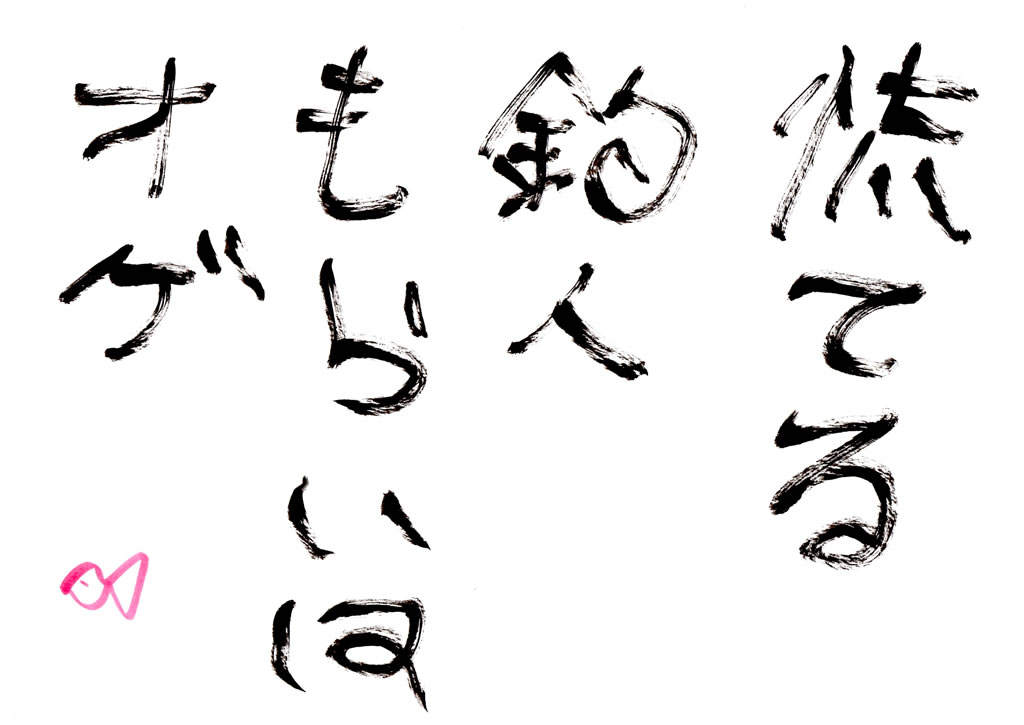 慌てる
釣人
もらいは
オゲ